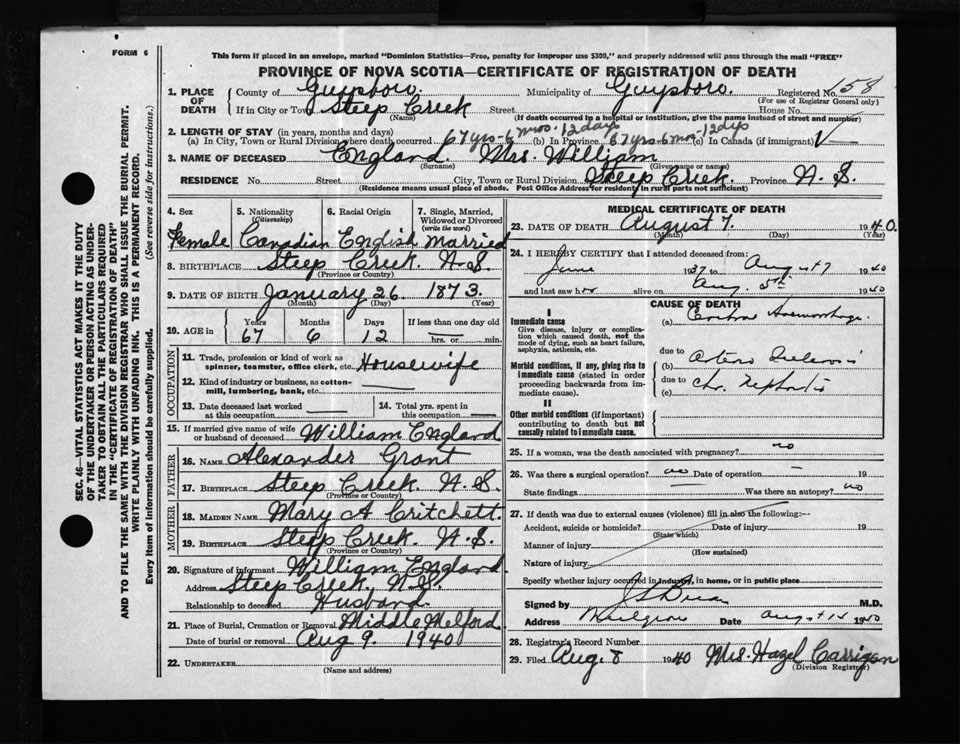 FORM 6
This form if placed in an envelope, marked "Dominion Statistics—Free, penalty for improper use $300," and properly addressed will pass through the mail "FREE"
PROVINCE OF NOVA SCOTIA—CERTIFICATE OF REGISTRATION OF DEATH
SEC. 46—VITAL STATISTICS ACT MAKES IT THE DUTY
OF THE UNDERTAKER OR PERSON ACTING AS UNDER-
TAKER TO OBTAIN ALL THE PARTICULARS REQUIRED
IN THE "CERTIFICATE OF REGISTRATION OF DEATH"
AND TO FILE THE SAME WITH THE DIVISION REGISTRAR WHO SHALL ISSUE THE BURIAL PERMIT.
WRITE PLAINLY WITH UNFADING INK. THIS IS A PERMANENT RECORD.
Every item of information should be carefully supplied. (See reverse side for instructions.)
1. PLACE OF DEATH County of Guysboro. Municipality of Guysboro. Registered No. 158
(For use of Registrar General only)
If in City or Town Steep Creek Street House No.
(Name) (If death occurred in a hospital or institution, give the name instead of street and number)
2. LENGTH OF STAY (in years, months and days)
(a) In City, Town or Rural Division where death occurred 67 yrs-6 mos-12 days (b) In Province 67 yrs-6 mos-12 days (c) In Canada (if immigrant)
3. NAME OF DECEASED England. Mrs. William
(Surname) (Given name or names)
RESIDENCE No. Street City, Town or Rural Division Steep Creek. Province N. S.
(Residence means usual place of abode. Post Office Address for residents in rural parts not sufficient)
4. Sex Female
5. Nationality (Citizenship) Canadian
6. Racial Origin English
7. Single, Married, Widowed or Divorced (write the word) Married
8. BIRTHPLACE Steep Creek. N. S.
(Province or Country)
9. DATE OF BIRTH January 26 1873.
(Month) (Day) (Year)
10. AGE in Years 67 Months 6 Days 12 If less than one day old hrs. or min.
OCCUPATION
11. Trade, profession or kind of work as spinner, teamster, office clerk, etc. Housewife
12. Kind of industry or business, as cotton-mill, lumbering, bank, etc.
13. Date deceased last worked at this occupation
14. Total yrs. spent in this occupation
15. If married give name of wife or husband of deceased William England
FATHER
16. NAME Alexander Grant
17. BIRTHPLACE Steep Creek. N. S.
(Province or Country)
MOTHER
18. MAIDEN NAME Mary A Critchett.
19. BIRTHPLACE Steep Creek. N. S.
(Province or Country)
20. Signature of informant William England.
Address Steep Creek. N. S.
Relationship to deceased Husband.
21. Place of Burial, Cremation or Removal Middle Melford
Date of burial or removal Aug 9. 1940
22. UNDERTAKER
(Name and Address)
MEDICAL CERTIFICATE OF DEATH
23. DATE OF DEATH August 7. 1940.
(Month) (Day) (Year)
24. I HEREBY CERTIFY that I attended deceased from:
June 1937 to August 7 1940
and last saw her alive on Aug. 5th 1940
CAUSE OF DEATH
I
Immediate cause
Give disease, injury or complication which caused death, not the mode of dying, such as heart failure, asphyxia, asthenia, etc.
(a) Haemorrhage.
Morbid conditions, if any, giving rise to immediate cause (stated in order proceeding backwards from immediate cause)
due to
(b)
due to
(c) Chr. Nephritis
II
Other morbid conditions (if important) contributing to death but not causally related to immediate cause.
25. If a woman, was the death associated with pregnancy? no
26. Was there a surgical operation? no Date of operation — 19
State findings — Was there an autopsy? no
27. If death was due to external causes (violence) fill in also the following:—
Accident, suicide or homicide? Date of injury 19
(State which)
Manner of injury
(How sustained)
Nature of injury
Specify whether injury occurred in industry, in home, or in public place
Signed by M.D.
Address Mulgrave Date August 1940
28. Registrar's Record Number
29. Filed Aug 8 1940 Mrs. Hazel Carrigan
(Division Registrar)